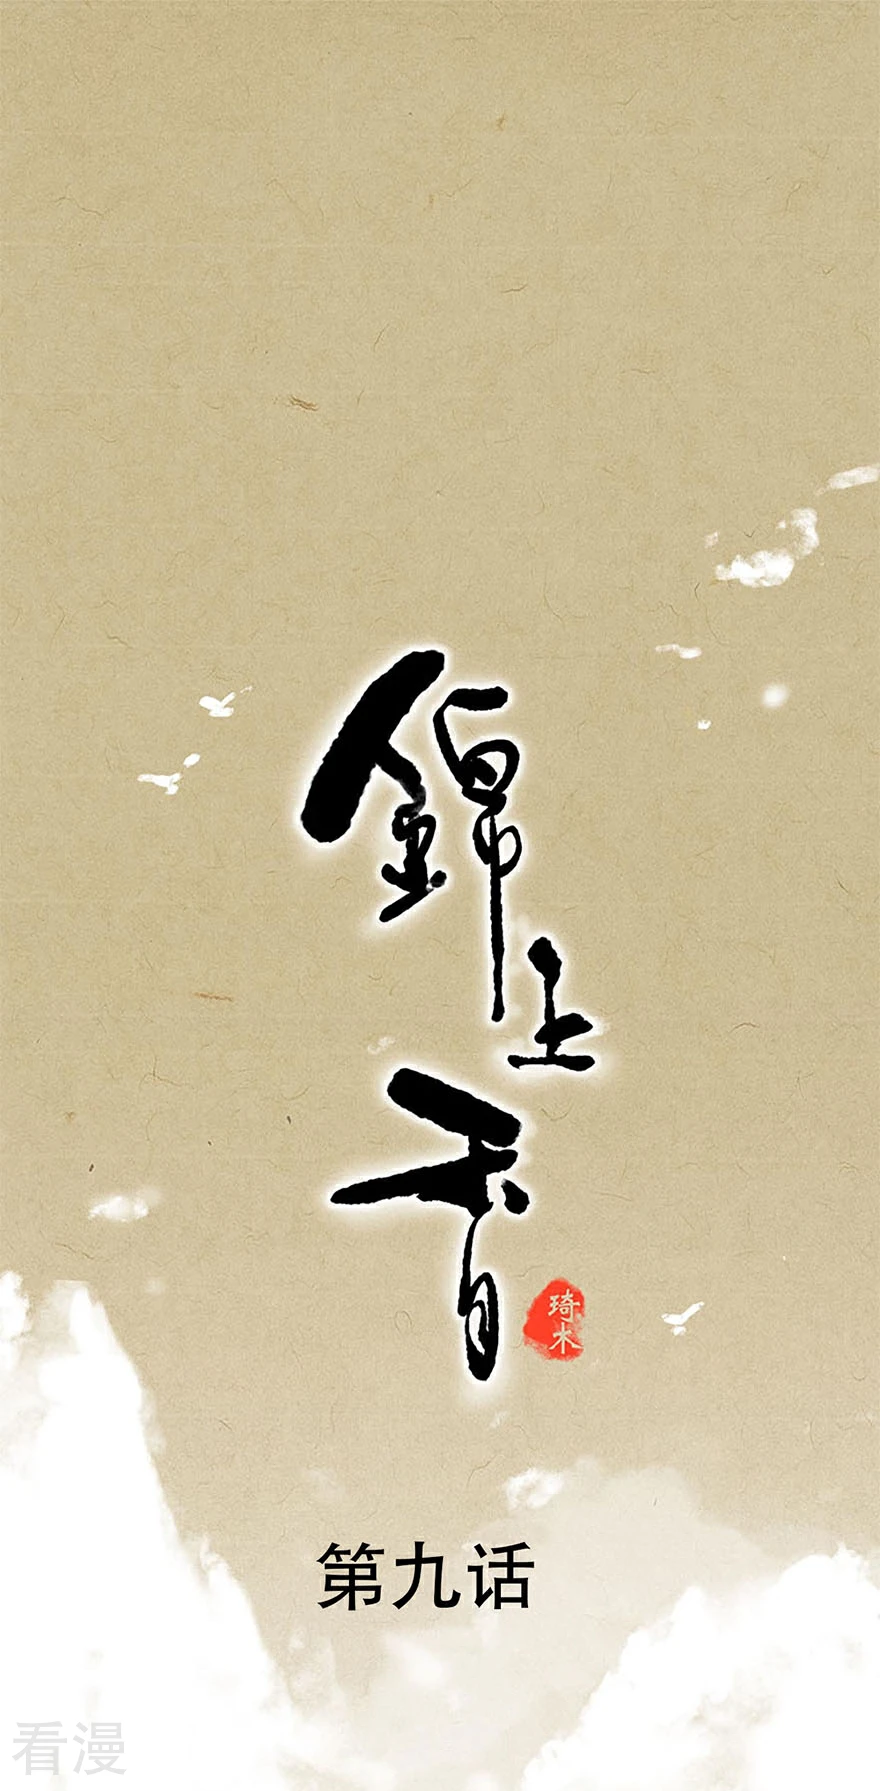 錦上香
琦木
第九话
看漫